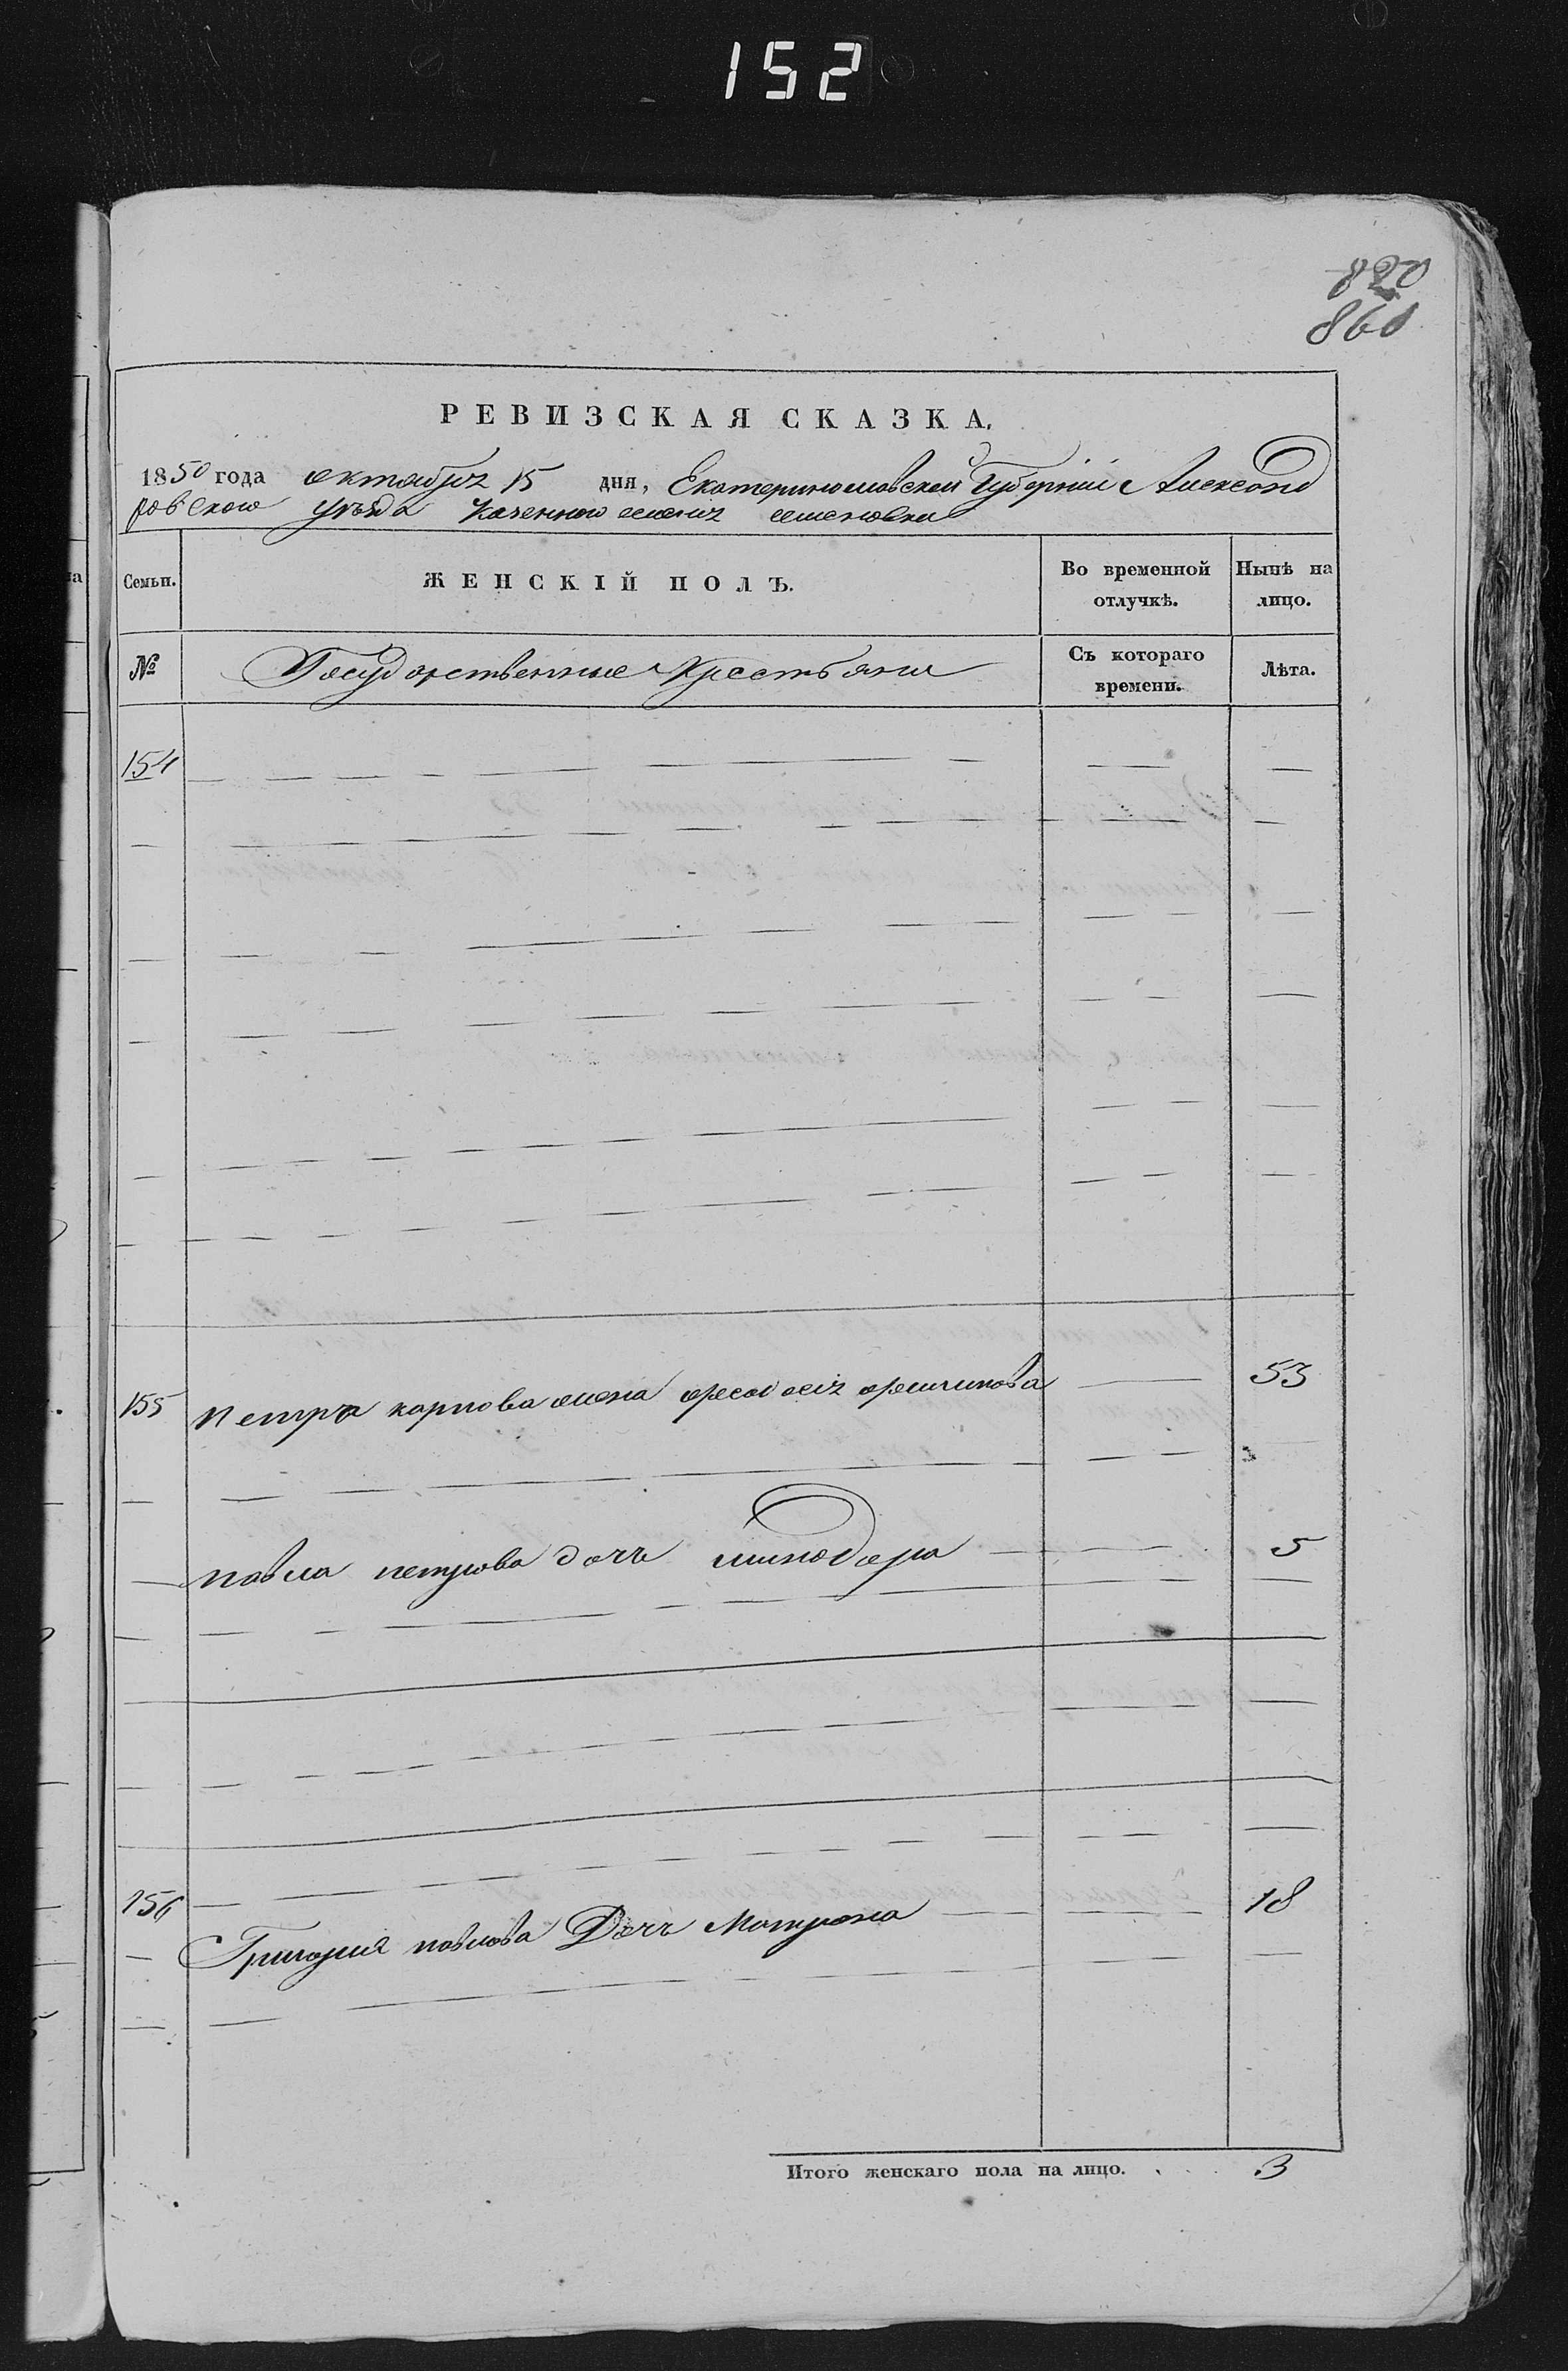 152
860
РЕВИЗСКАЯ СКАЗКА.
1850 года октября 15 дня, Екатеринославской Губерніи Александ
ровского уезда Казенного селенія семеновки
Семьи. ЖЕНСКІЙ ПОЛЪ. Во временной отлучкѣ. Нынѣ на лицо.
№ Государственные Крестьяни Съ котораго времени. Лѣта.
154
155 Петра карпова жена 53
павла петрова дочь минодора 5
156
Григория павлова Дочь Матрона 18
Итого женскаго пола на лицо. 3